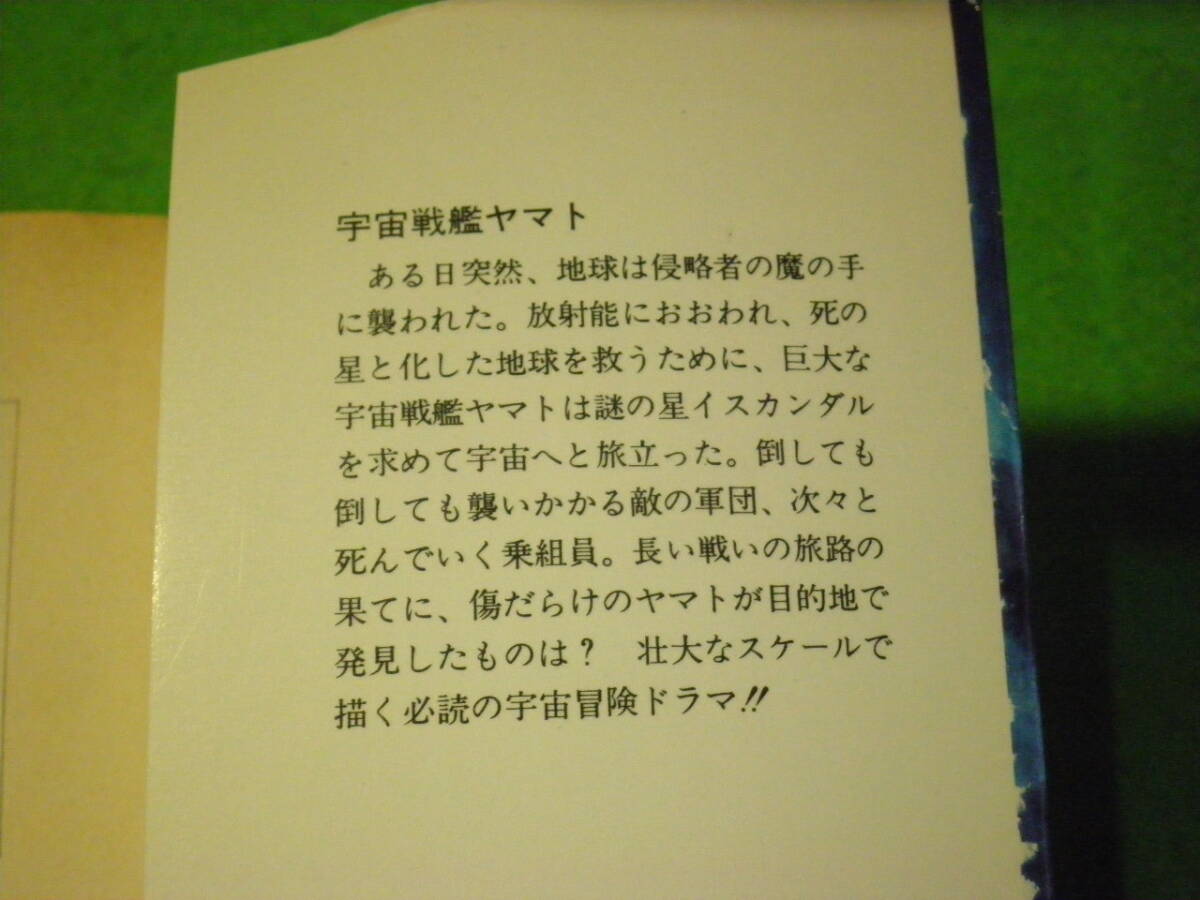 宇宙戦艦ヤマト
　ある日突然、地球は侵略者の魔の手
に襲われた。放射能におおわれ、死の
星と化した地球を救うために、巨大な
宇宙戦艦ヤマトは謎の星イスカンダル
を求めて宇宙へと旅立った。倒しても
倒しても襲いかかる敵の軍団、次々と
死んでいく乗組員。長い戦いの旅路の
果てに、傷だらけのヤマトが目的地で
発見したものは？　壮大なスケールで
描く必読の宇宙冒険ドラマ!!